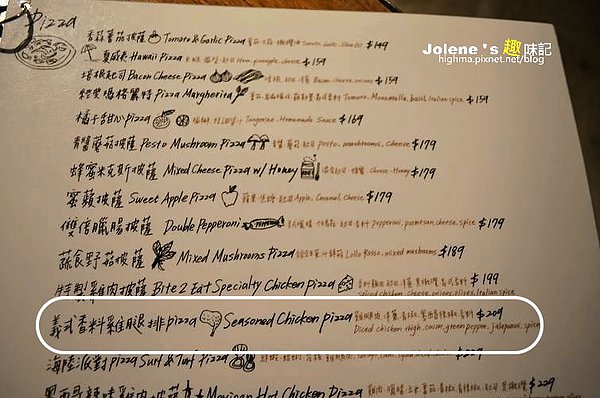 Pizza
Jolene's 趣味記
highma.pixnet.net/blog
香蒜蕃茄披薩 Tomato & Garlic Pizza Tomato, Garlic, Olive Oil $149
夏威夷 Hawaii Pizza Ham, pineapple, cheese $139
培根起司 Bacon Cheese Pizza Bacon, cheese, onion $139
經典瑪格麗特 Pizza Margherita Tomato, Mozzarella, basil, Italian spice $139
橘子甜心 Pizza Tangerine, Homemade Sauce $169
青醬蘑菇披薩 Pesto Mushroom Pizza pesto, mushrooms, cheese $179
蜂蜜米克斯披薩 Mixed Cheese Pizza w/ Honey Cheese, Honey $179
蜜蘋披薩 Sweet Apple Pizza Apple, Caramel, Cheese $179
雙倍臘腸披薩 Double Pepperoni Pepperoni, parmesan, cheese, spice $179
蔬食野菇披薩 Mixed Mushrooms Pizza Lollo Rosso, mixed mushrooms $189
特製雞肉披薩 Bite 2 Eat Specialty Chicken Pizza $199
spiced chicken, cheese, onions, olives, Italian spice
義式香料雞腿排 pizza Seasoned Chicken pizza $209
Diced chicken thigh, onion, green pepper, jalapenos, spice
海陸派對 pizza Surf & Turf Pizza $229
墨西哥辣味雞肉披薩 Mexican Hot Chicken Pizza $229